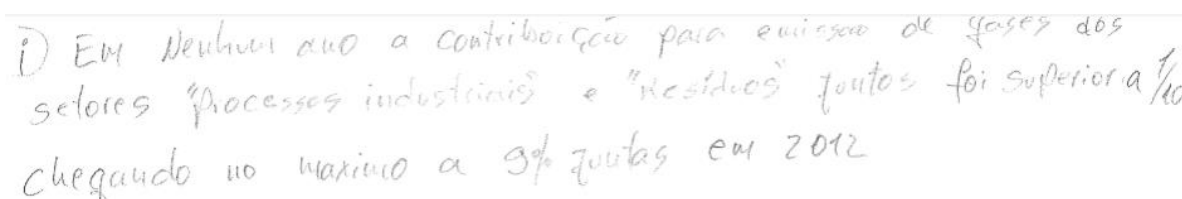 i) Em Nenhum ano a contriboição para emissão de gases dos
setores "Processos industriais" e "Resíduos" juntos foi superior a 1/10
chegando no maximo a 9% juntas em 2012